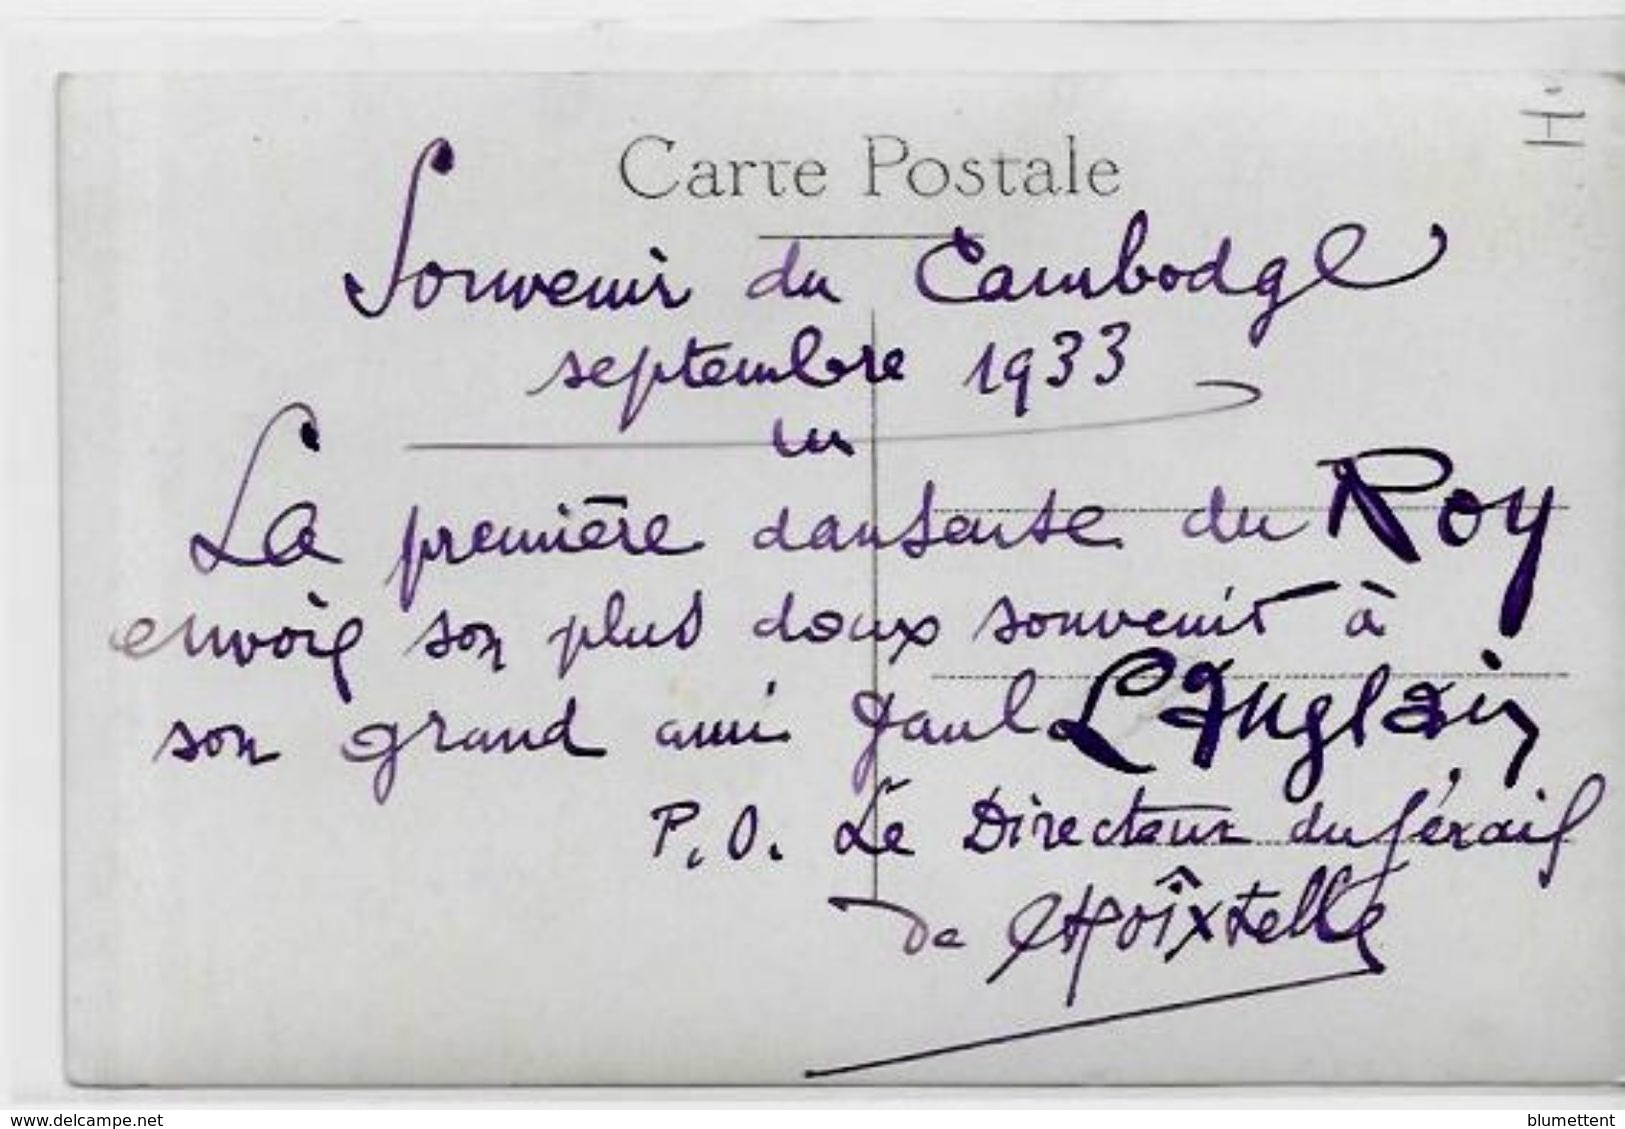 Carte Postale
Souvenir du Cambodge
septembre 1933
La première danseuse du Roy
envoie son plus doux souvenir à
son grand ami Paul Langlain
P.O. Le Directeur du Sérail
de
delcampe.net
blumettent